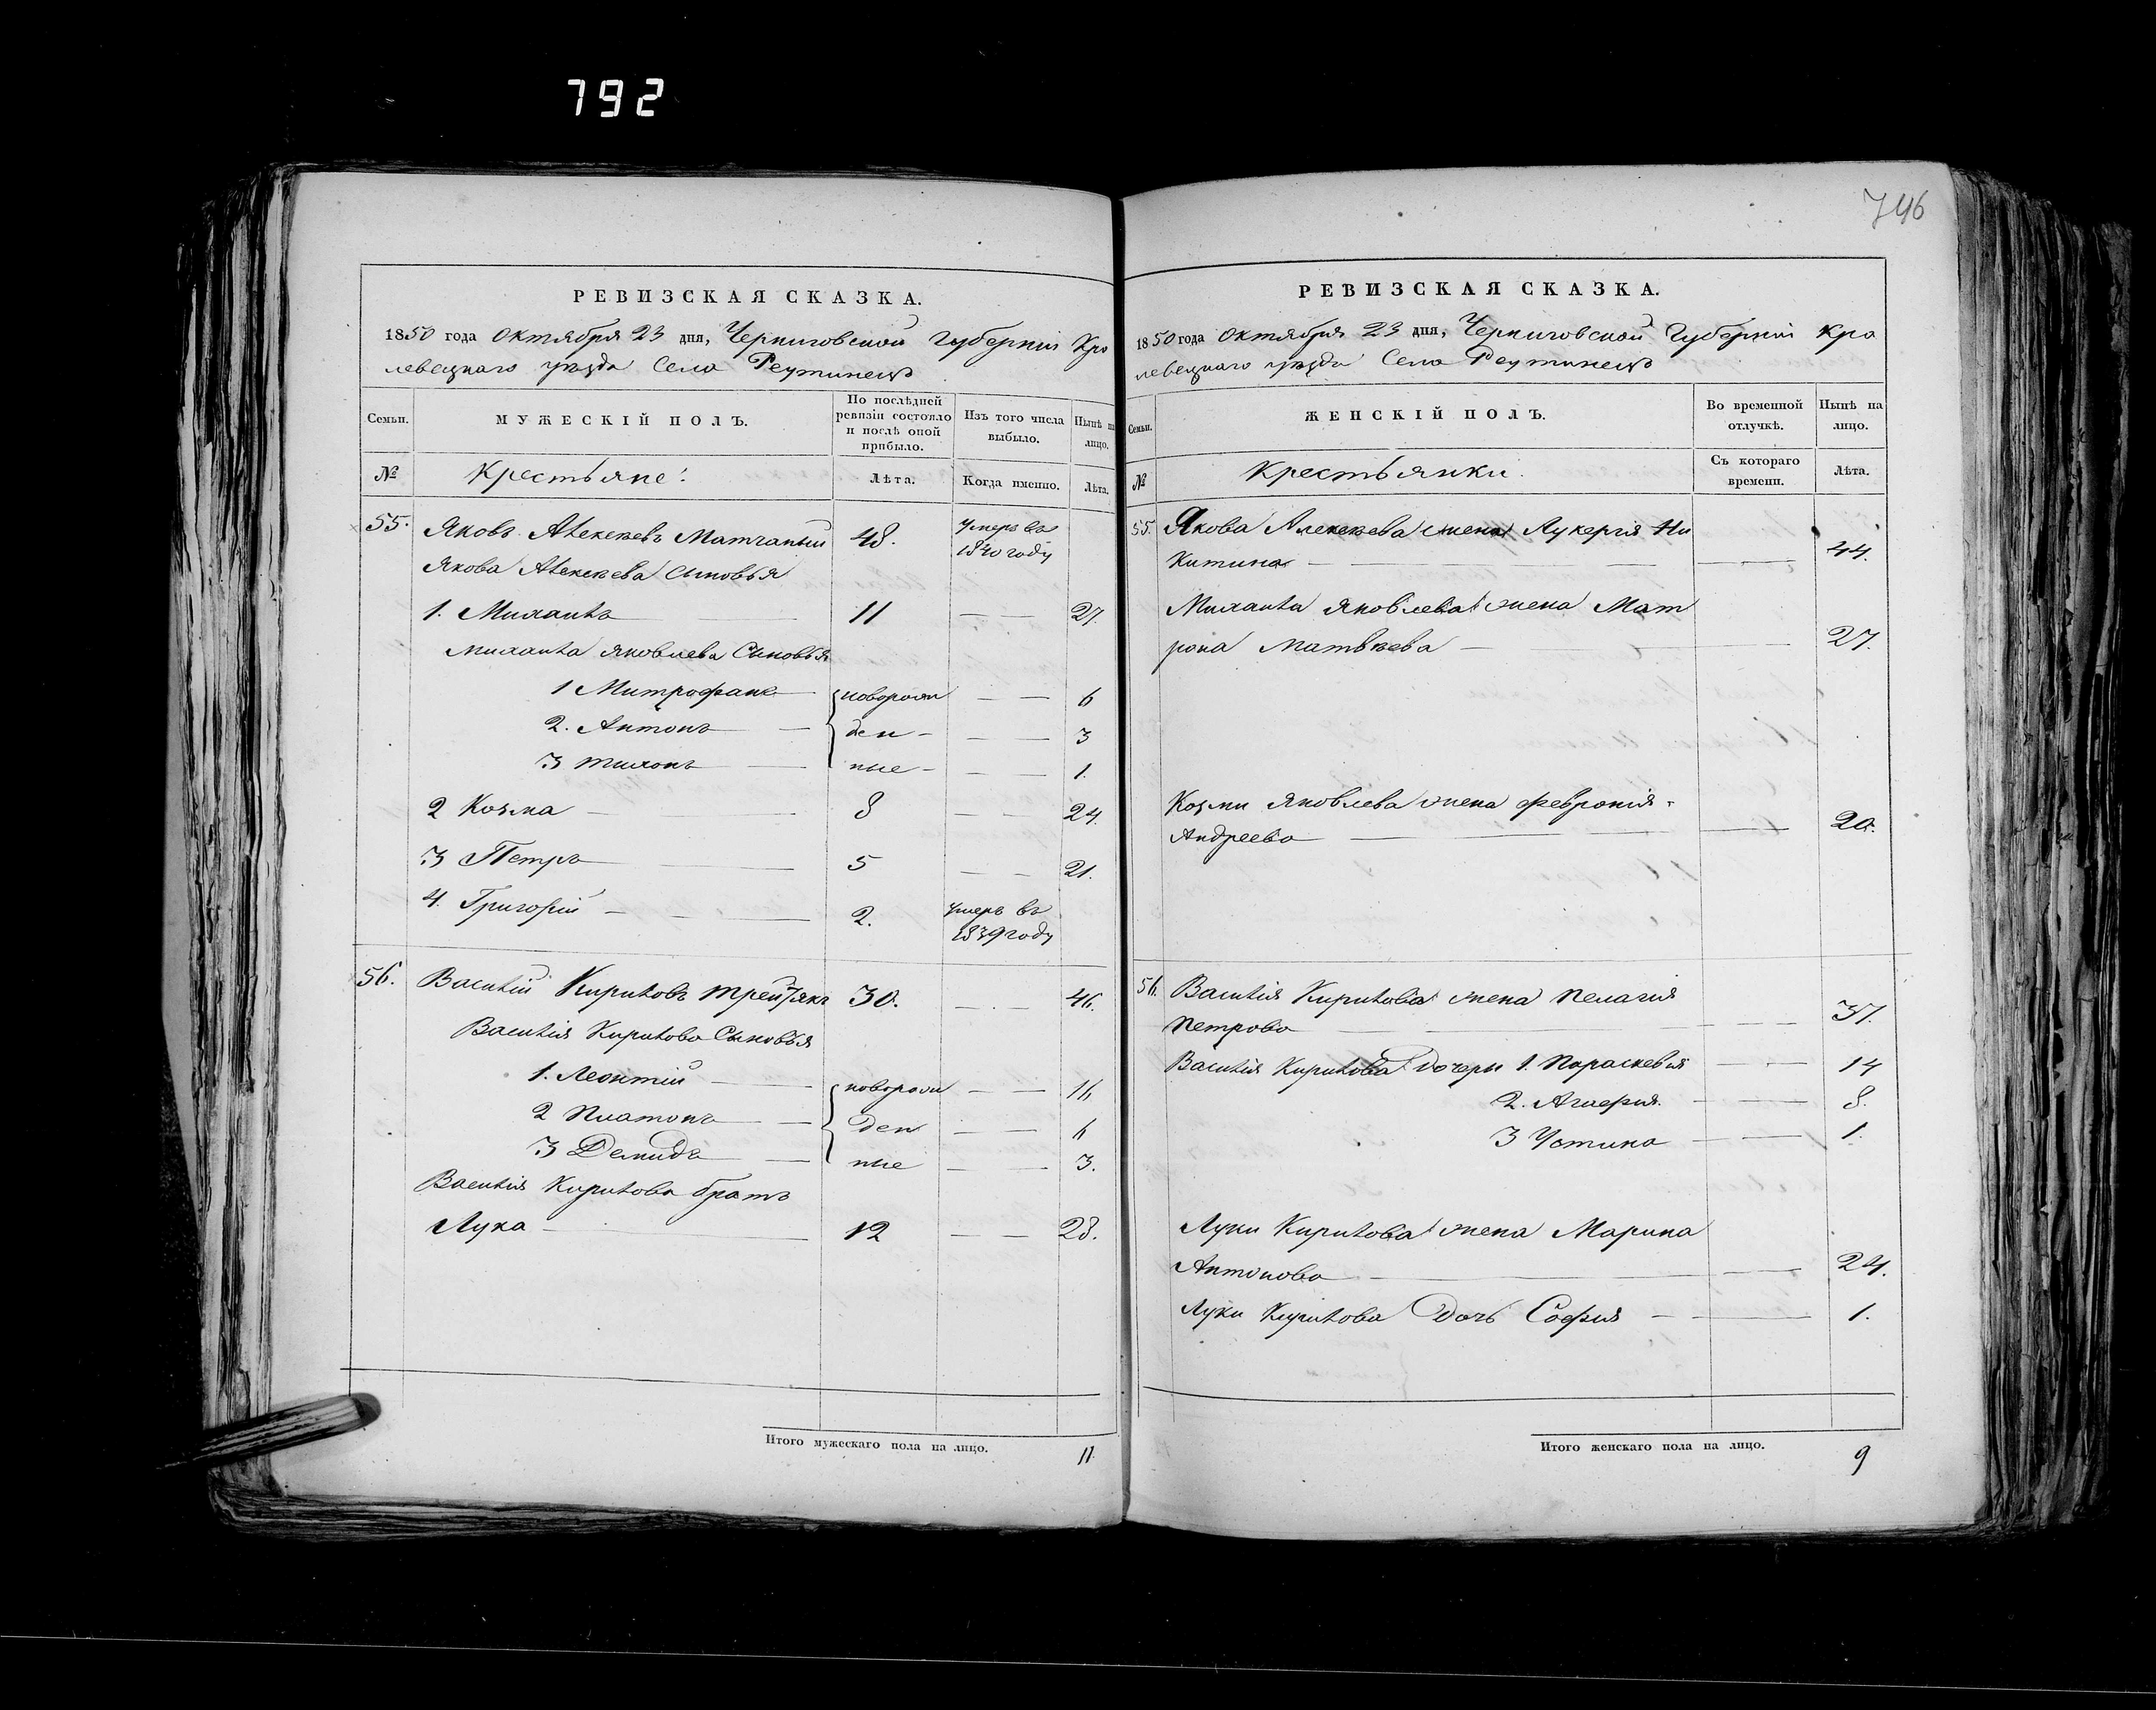 792
746
РЕВИЗСКАЯ СКАЗКА.
1850 года Октября 23 дня, Черниговской Губерніи Кро
левецкаго уѣзда Села Реутинецъ
Семьи.
МУЖЕСКІЙ ПОЛЪ.
По послѣдней ревизіи состояло и послѣ оной прибыло.
Изъ того числа выбыло.
Нынѣ на лицо.
№
Крестьяне:
Лѣта.
Когда именно.
Лѣта.
55. Яковъ Алексѣевъ 48. умеръ въ 1840 году
Якова Алексѣева сыновья
1. Михаилъ 11 27.
Михаила Яковлева Сыновья
1 Митрофанъ новорож 6
2. Антонъ ден 3
3 Тихонъ ные 1.
2 Козма 8 24.
3 Петръ 5 21.
4. Григорій 2. умеръ въ 1839 году
56. Василій Кириловъ 30. 46.
Василія Кирилова Сыновья
1. Леонтій новорож 16
2 Платонъ ден 6
3 Демидъ ные 3.
Василія Кирилова братъ
Лука 12 28.
Итого мужескаго пола на лицо. 11.
РЕВИЗСКАЯ СКАЗКА.
1850 года Октября 23 дня, Черниговской Губерніи Кро
левецкаго уѣзда Села Реутинецъ
Семьи.
ЖЕНСКІЙ ПОЛЪ.
Во временной отлучкѣ.
Нынѣ на лицо.
№
Крестьянки.
Съ котораго времени.
Лѣта.
55. Якова Алексѣева жена Лукерія Ни
китина 44.
Михаила Яковлева жена Мат
рона Матвѣева 27.
Козмы Яковлева жена Февронія
Андреева 20.
56. Василія Кирилова жена Пелагія
Петрова 37.
Василія Кирилова дочери 1. Параскевія 14
2. Агафія. 8.
3 Устина 1.
Луки Кирилова жена Марина
Антонова 24.
Луки Кирилова Дочь Софія 1.
Итого женскаго пола на лицо. 9